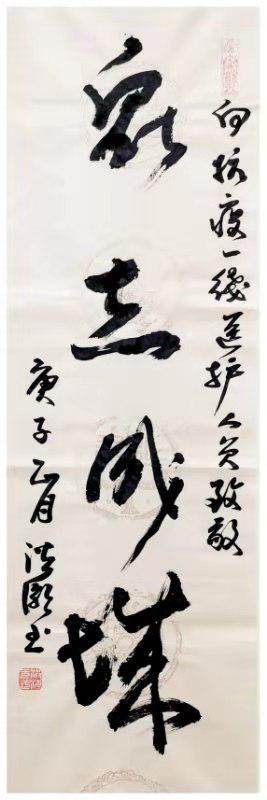 向抗疫一线医护人员致敬
众志成城
庚子正月